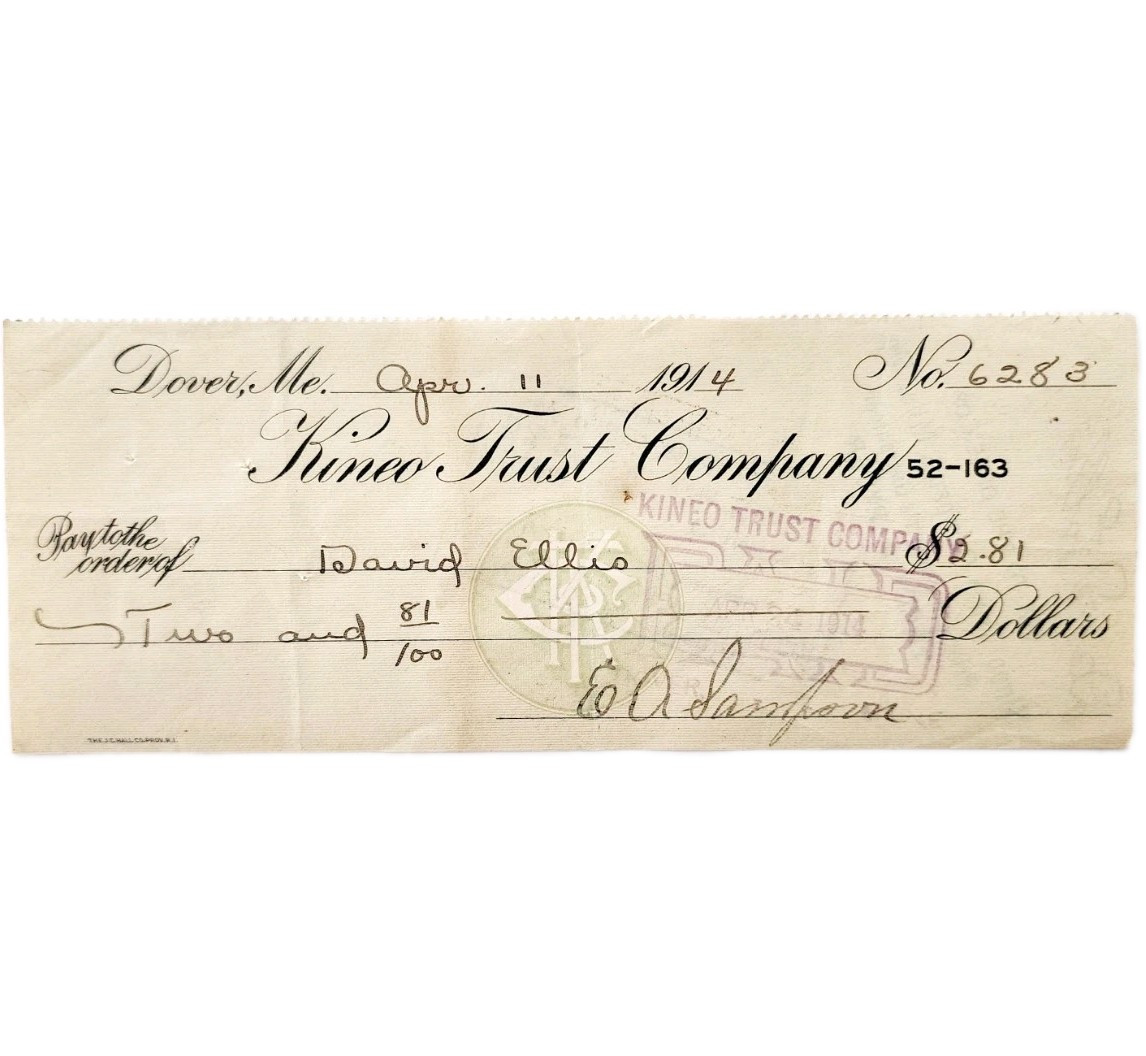 Dover, Me. Apr. 11 1914 No. 6283
Kineo Trust Company 52-163
KINEO TRUST COMPANY
Pay to the order of David Ellis $2.81
PAID
1914
Two and 81/100 Dollars
E A Sampson
THE J.C. HALL CO. PROV. R.I.